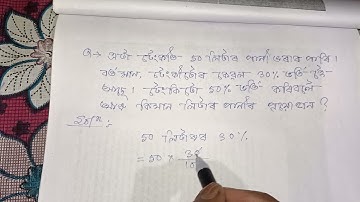 Q → এটা টেংকীত 50 লিটাৰ পানী ভৰাব পাৰি।
বৰ্তমান টেংকীটোৰ কেৱল 30% ভৰ্তি হৈ
আছে। টেংকিটো 50% ভৰ্তি কৰিবলৈ
আৰু কিমান লিটাৰ পানীৰ প্ৰয়োজন?
50 লিটাৰৰ 30%
= 50 × 30/10